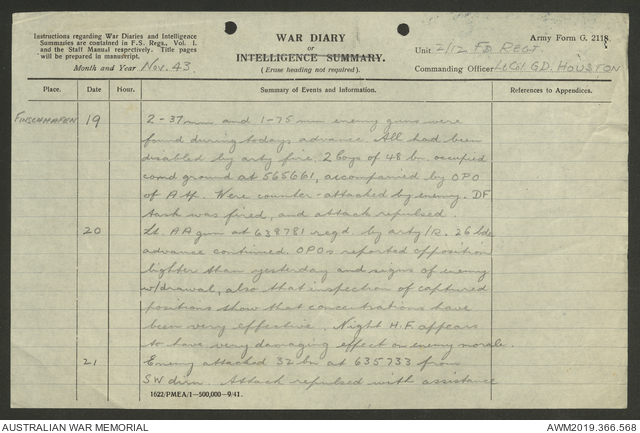 Instructions regarding War Diaries and Intelligence
Summaries are contained in F.S. Regs., Vol. I.
and the Staff Manual respectively. Title pages
will be prepared in manuscript.
Month and Year Nov. 43.
WAR DIARY
or
INTELLIGENCE SUMMARY.
(Erase heading not required).
Army Form C. 2118.
Unit 2/12 Fd REGT.
Commanding Officer Lt Col G.D. HOUSTON
Place. Date Hour. Summary of Events and Information. References to Appendices.
FINSCHHAFEN 19 2 - 37mm and 1 - 75 mm enemy guns were
found during todays advance. All had been
disabled by arty fire. 2 Coys of 48 bn. occupied
comd ground at 565661, accompanied by OPO
of A tp. Were counter-attached by enemy. DF
task was fired, and attack repulsed.
20 Lt. AA gun at 638781 regd. by arty/R. 26 bde
advance continued. OPOs reported opposition
lighter than yesterday and signs of enemy
w/drawal, also that inspection of captured
positions show that concentrations have
been very effective. Night H.F. appears
to have very damaging effect on enemy morale.
21 Enemy attached 32 bn at 635733 from
SW dirn. Attack repulsed with assistance
1622/PMEA/1-500,000-9/41.
AUSTRALIAN WAR MEMORIAL
AWM2019.366.568